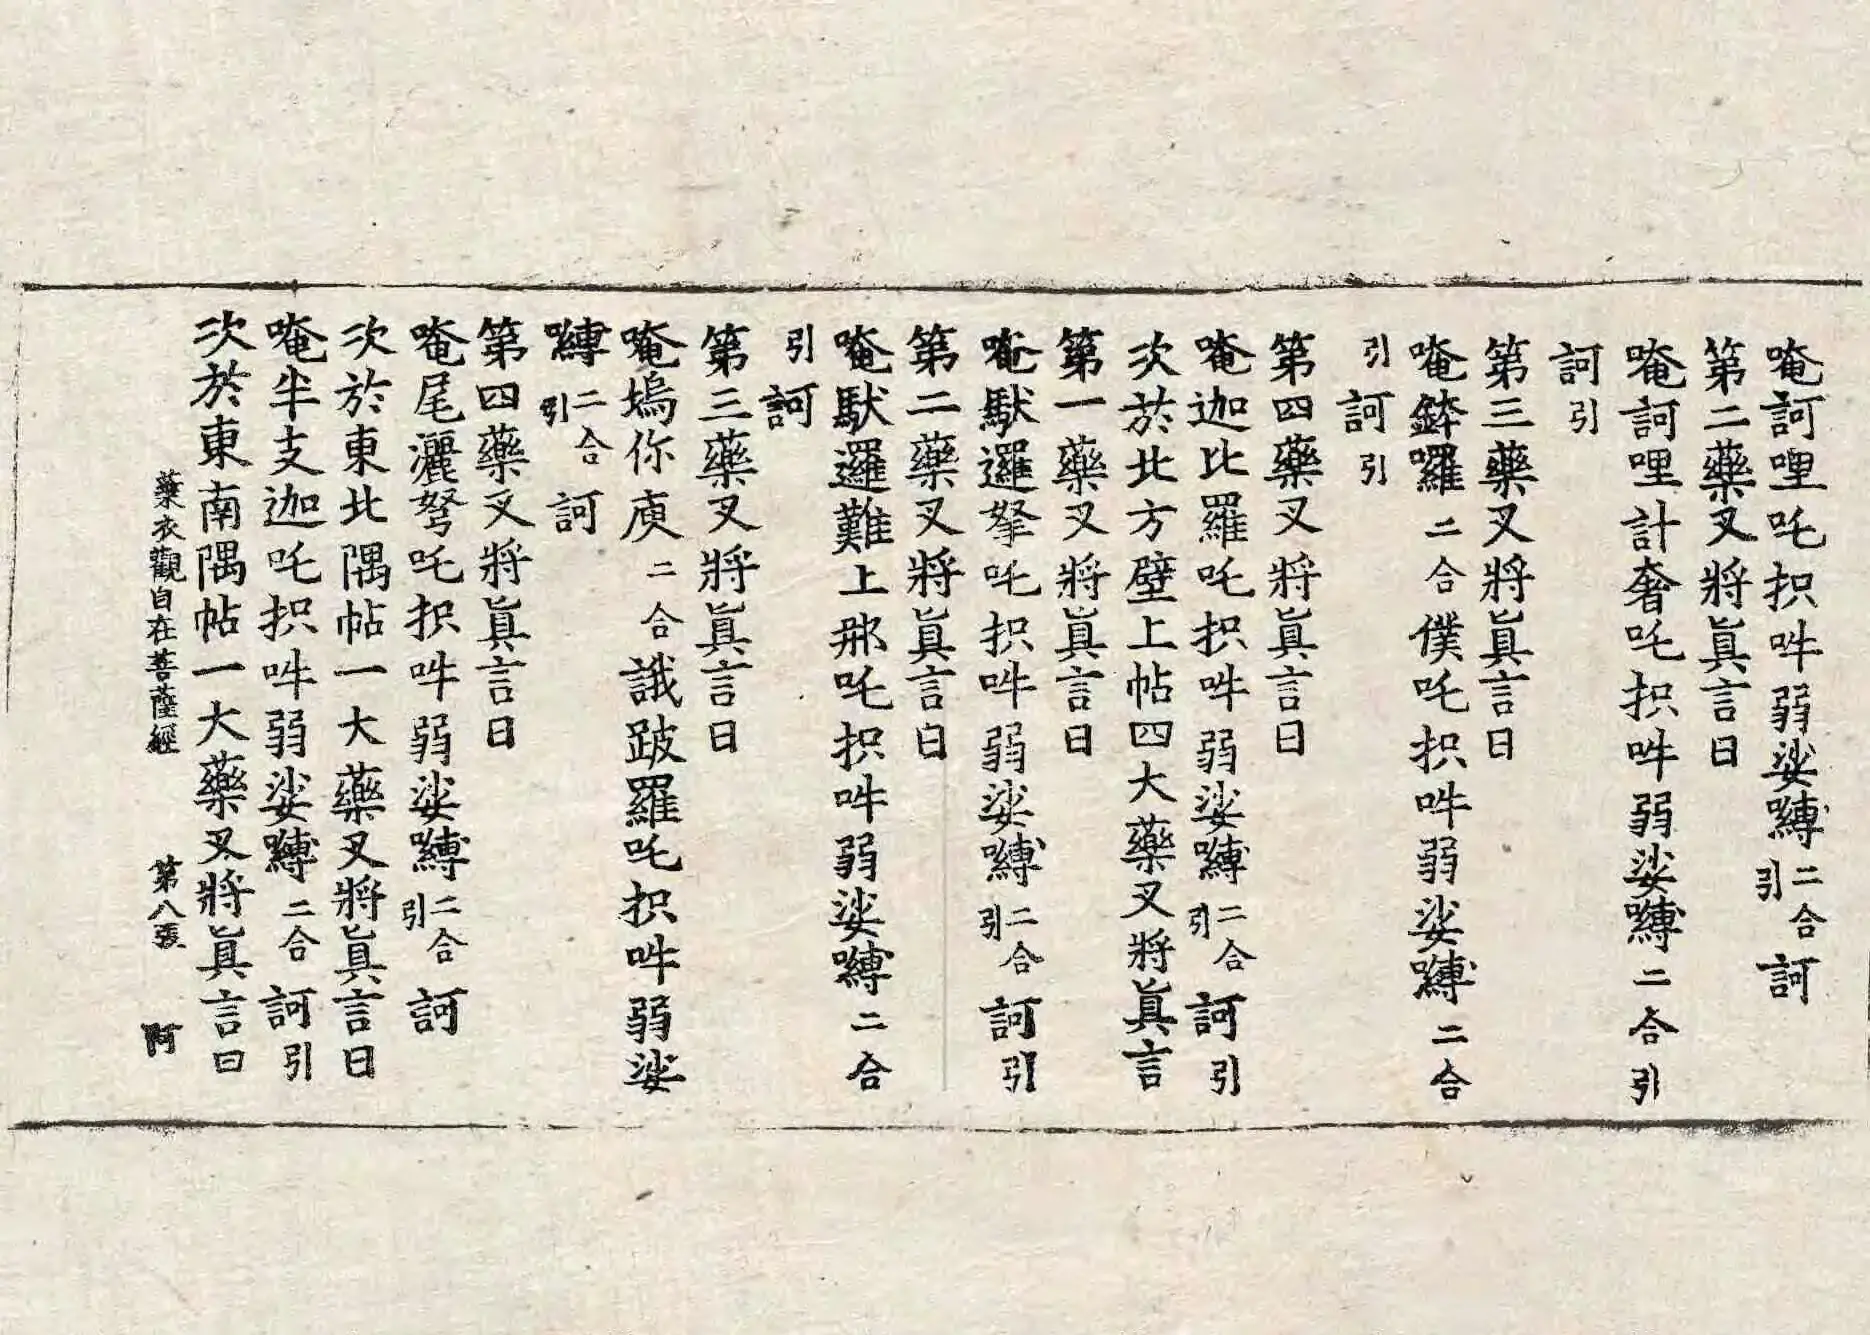 唵訶哩吒抧吽弱娑嚩二合引訶
第二藥叉將眞言曰
唵訶哩計奢吒抧吽弱娑嚩二合引
訶引
第三藥叉將眞言曰
唵鉢囉二合僕吒抧吽弱娑嚩二合
引訶引
第四藥叉將眞言曰
唵迦比羅吒抧吽弱娑嚩二合引訶引
次於北方壁上帖四大藥叉將眞言
第一藥叉將眞言曰
唵馱邏拏吒抧吽弱娑嚩二合引訶引
第二藥叉將眞言曰
唵馱邏難上那吒抧吽弱娑嚩二合
引訶
第三藥叉將眞言曰
唵塢你庾二合誐跛羅吒抧吽弱娑
嚩二合引訶
第四藥叉將眞言曰
唵尾灑弩吒抧吽弱娑嚩二合引訶
次於東北隅帖一大藥叉將眞言曰
唵半支迦吒抧吽弱娑嚩二合訶引
次於東南隅帖一大藥叉將眞言曰
葉衣觀自在菩薩經 第八張 阿